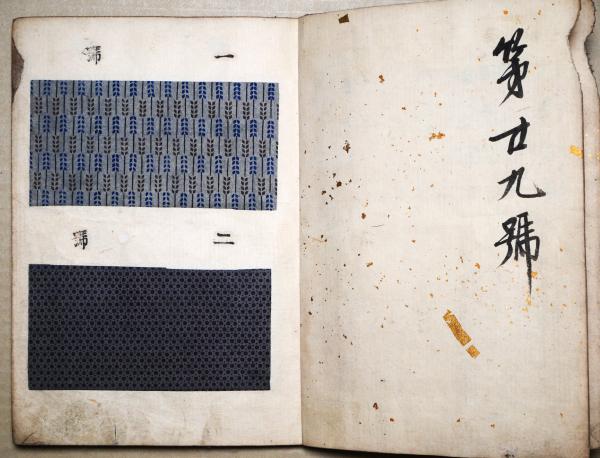 第廿九號
一號
二號